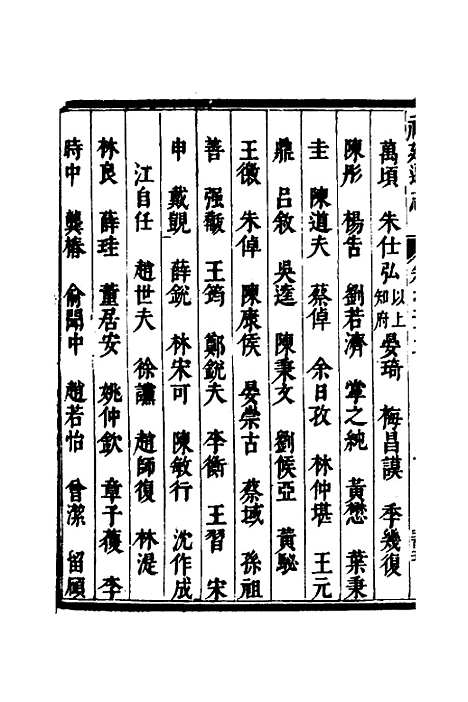 福建通志
萬頃 朱仕弘以上知府 晏琦 梅昌謨 季幾復
陳彤 楊告 劉若濟 掌之純 黃懋 葉秉
圭 陳道夫 蔡倬 余日孜 林仲堪 王元
鼎 呂敘 吳逵 陳秉文 劉候亞 黃駜
王徵 朱倬 陳康侯 晏崇古 蔡域 孫祖
善 强 王筠 鄭銳夫 李衛 王習 宋
申 戴覬 薛銳 林宋可 陳敏行 沈作成
江自任 趙世夫 徐讜 趙師復 林湜
林良 薛珪 董居安 姚仲欽 章子葰 李
時中 龔椿 俞聞中 趙若怡 曾潔 留願